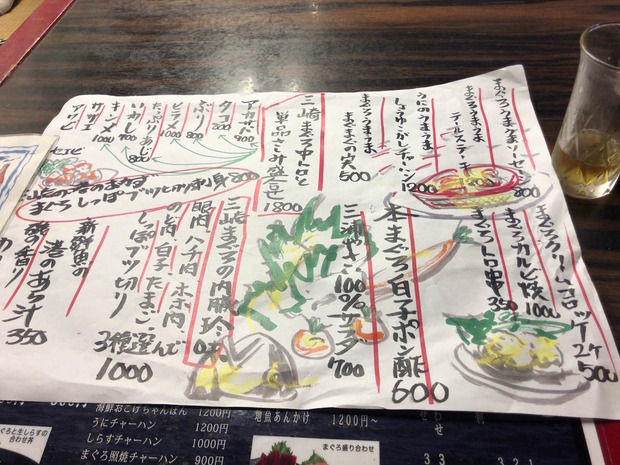 まぐろうまうまソーセージ
800
まぐろうまうま
テールステーキ
うにのうまうま
しょうゆこがしチャーハン
1200
まぐろうまうま
まぐまぐ門穴
500
三崎まぐろ中トロと
単品さしみ盛合せ
1800
アカザ
900
タコ
800
ぶり
800
ヒラメ
1000
たっぷりあじ
800
いかし
700
キンメ
1000
サザエ
アワビ
まぐろしっぽブツとわり刺身800
まぐろクリームコロッケ2ケ
500
まぐろカルビ焼
1000
まぐろトロ串
350
本まぐろ白子ポン酢
600
三浦やさい100%サラダ
700
三崎まぐろの内臓珍味
眼肉、ハチ肉、ホホ肉
のど肉、白子、たまご、
しっぽブツ切り
3種選んで
1000
新鮮魚の
港のあら汁
磯の香り
350
海鮮おこげちゃんぽん 1200円
うにチャーハン 1200円
しらすチャーハン 1000円
まぐろ照焼チャーハン 900円
地魚あんかけ 1200円~
まぐろと生しらすの
合わせ丼
まぐろ盛り合わせ